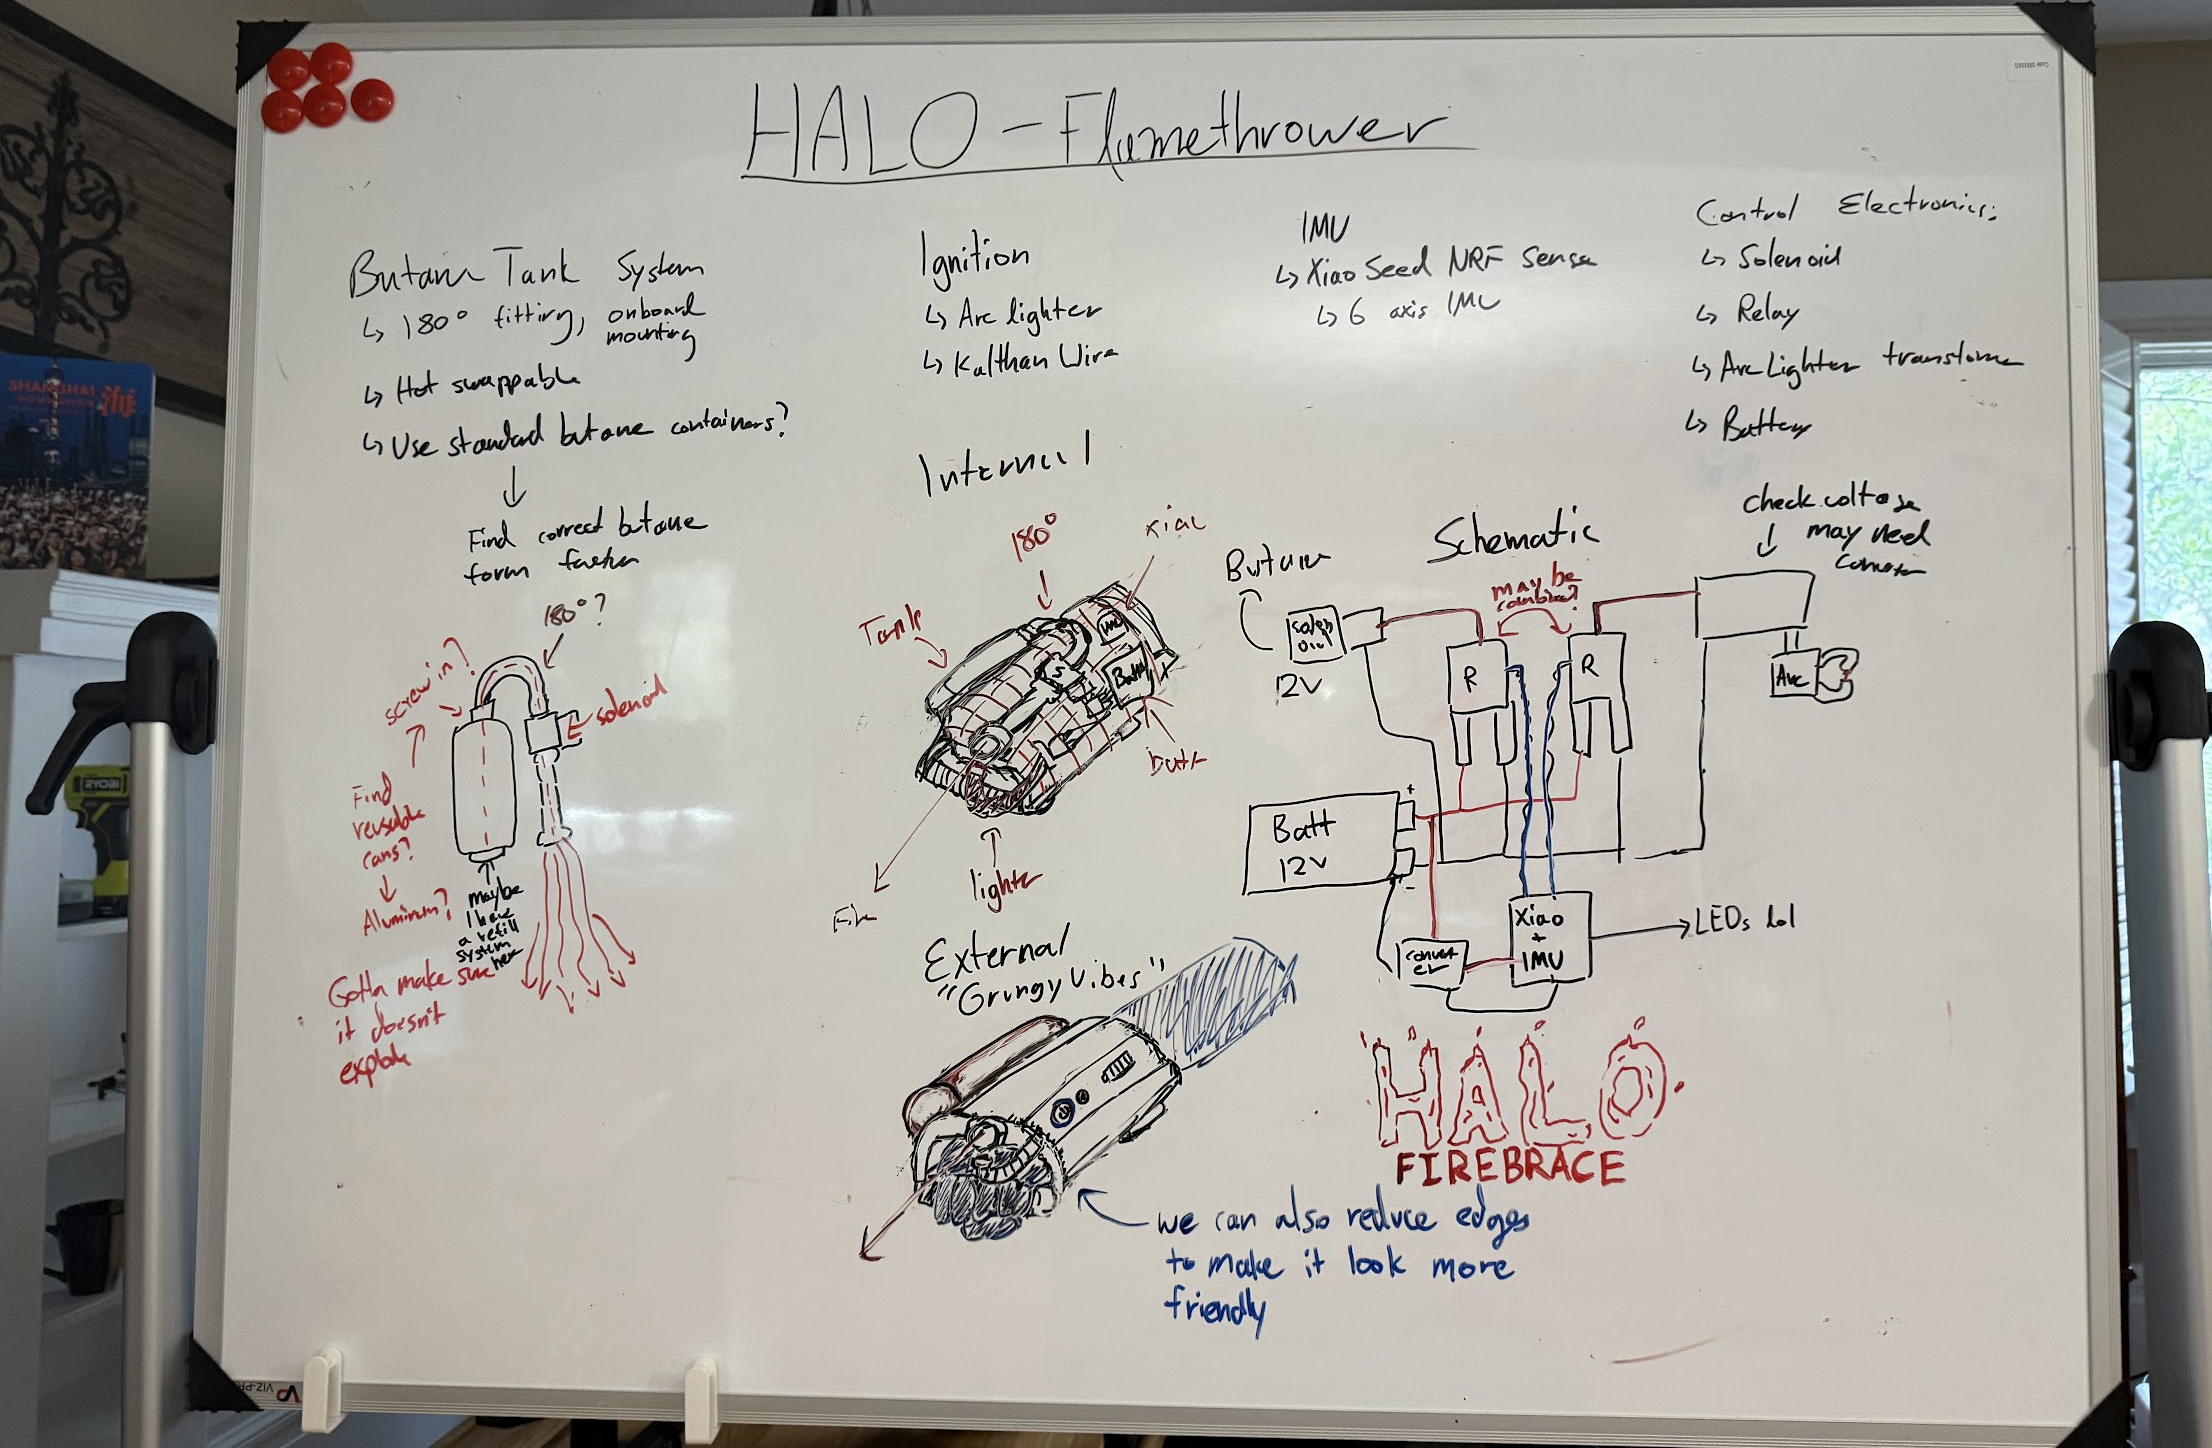 HALO - Flamethrower
Butane Tank System
↳ 180° fitting, onboard
mounting
↳ Hot swappable
↳ Use standard butane containers?
Find correct butane
form factor
180°?
screw in?
solenoid
Find
reusable
cans?
Aluminum?
maybe
I have
a refill
system
here
Gotta make sure
it doesn't
explode
Ignition
↳ Arc lighter
↳ Kalthan Wire
Internal
180°
xiao
Tank
IMU
S
Batt
batt
lighter
Fire
External
"Grungy Vibes"
we can also reduce edges
to make it look more
friendly
IMU
↳ Xiao Seed NRF Sense
↳ 6 axis IMU
Control Electronics:
↳ Solenoid
↳ Relay
↳ Arc Lighter transformer
↳ Battery
Schematic
check voltage
may need
converter
Butane
may be
combined?
solen
oid
12V
R
R
Arc
Batt
12V
+
-
convert
er
Xiao
+
IMU
LEDs lol
HALO
FIREBRACE
SHANGHAI
海
RYOBI
VIZ-PRO